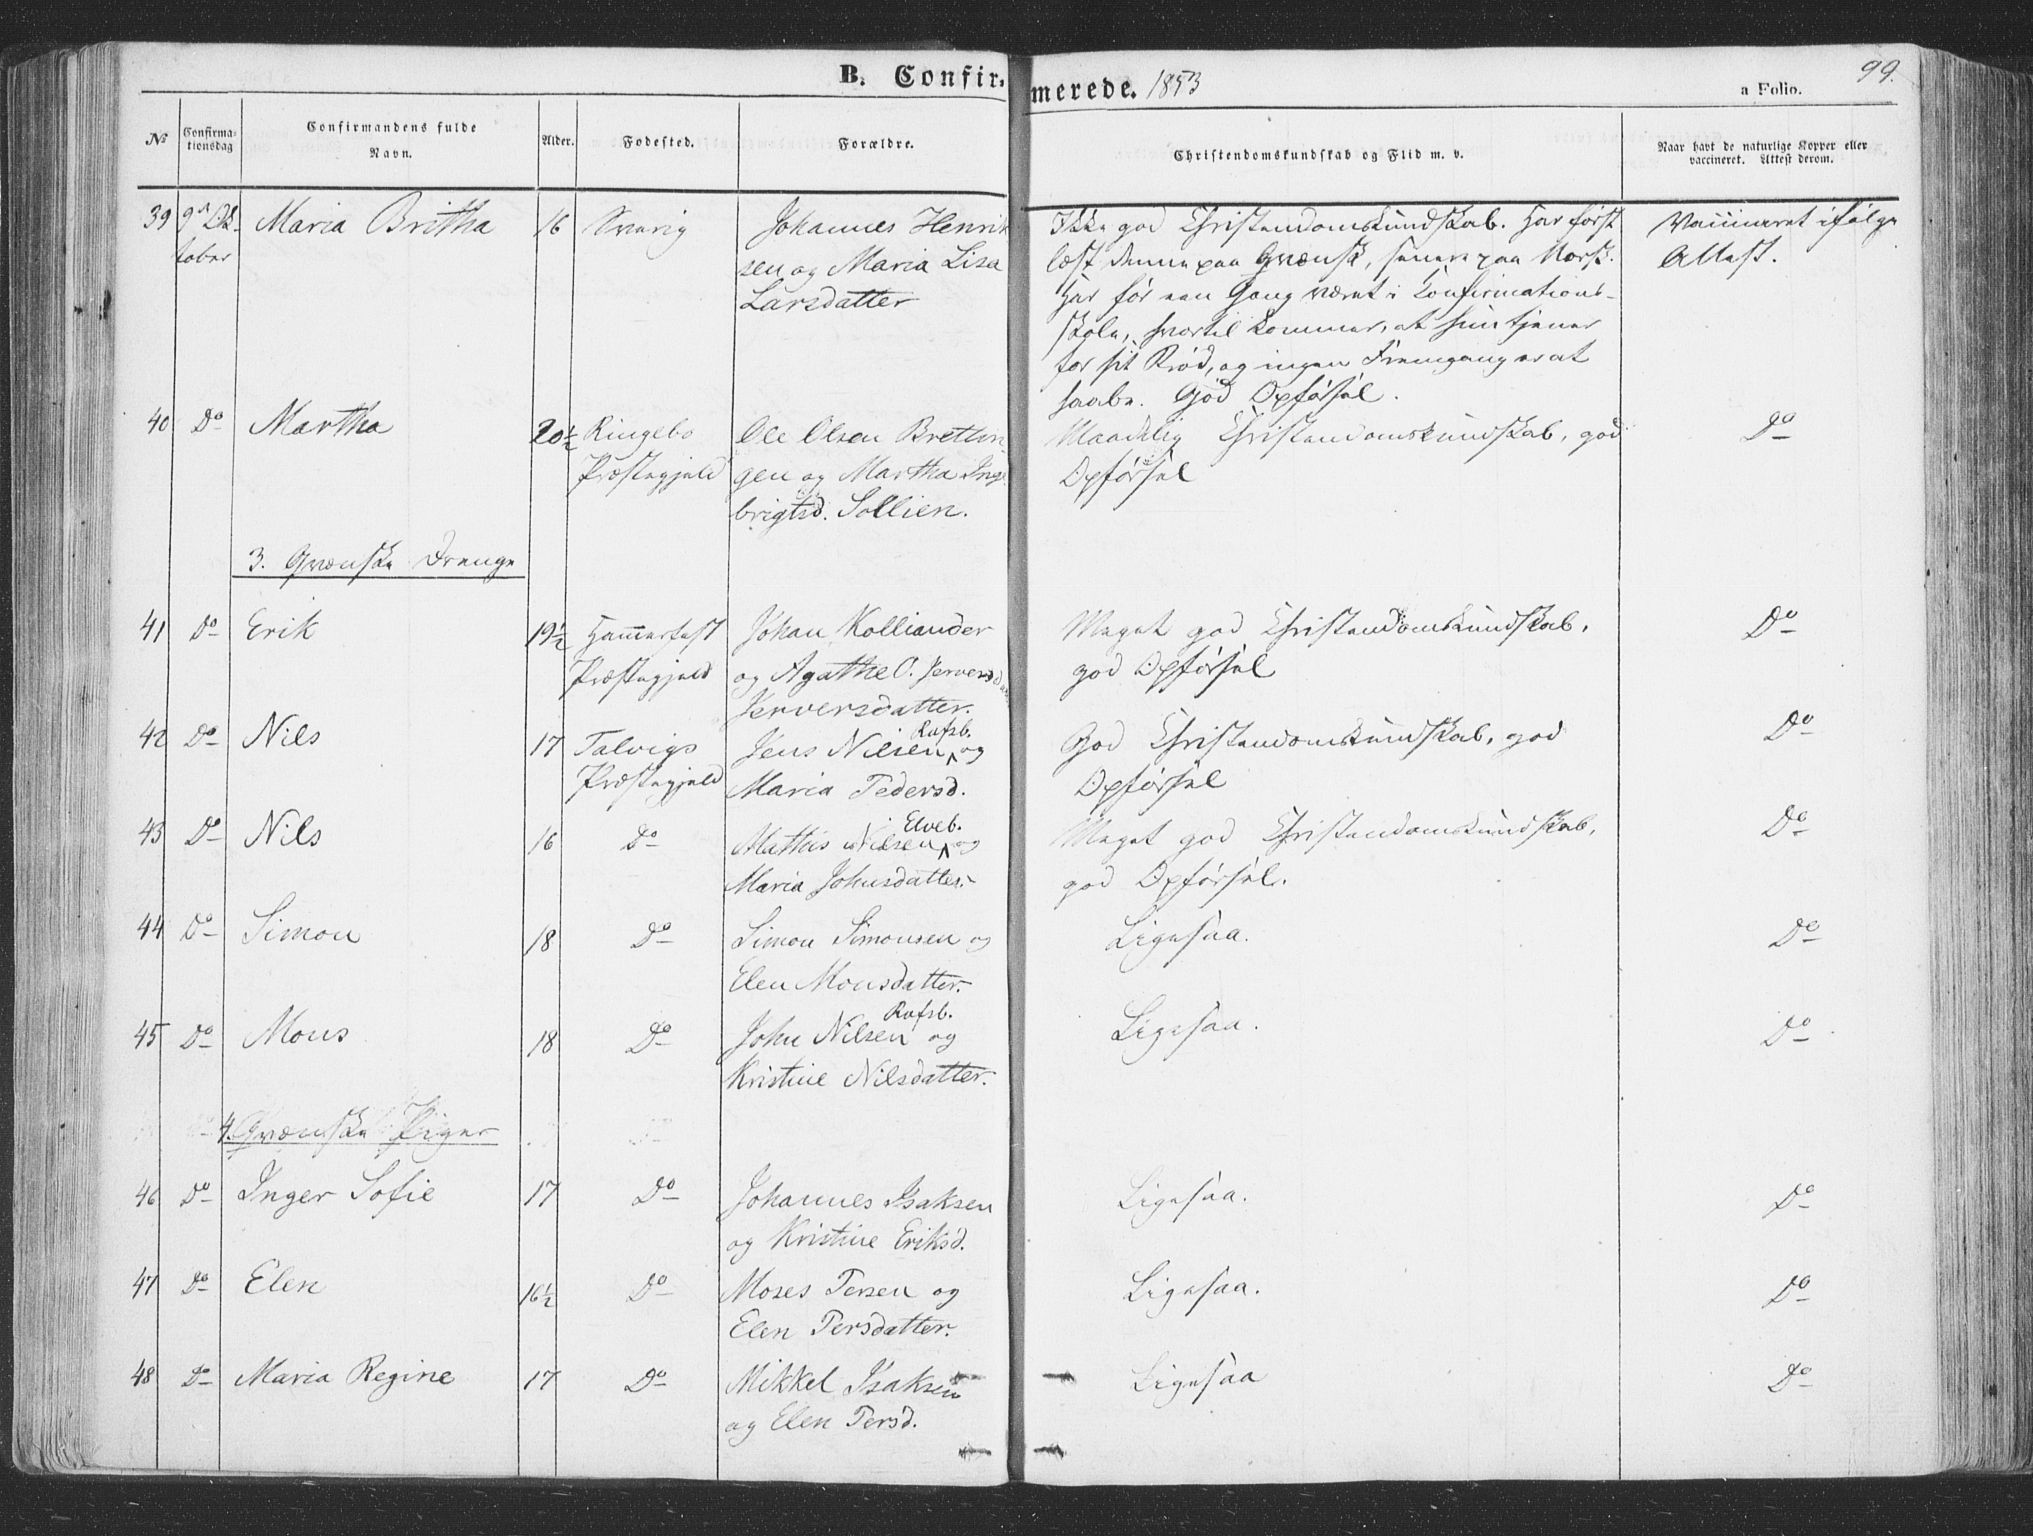 B. Confirmerede. 1853
a Folio. 99.
No Confirmationsdag Confirmandens fulde Navn. Alder. Fødested. Forældre. Christendomskundskab og Flid m. v. Naar havt de naturlige Kopper eller vaccineret. Attest derom.
39 9d Ok- Maria Britha 16 Sverig Johannes Henrik Ikke god Christendomskundskab. Har først Vaccineret ifølge
tober sen og Maria Lisa læst denne paa Qvænsk, senere paa Norsk. Attest.
Larsdatter Har før een Gang været i Confirmations-
skole, hvortil kommer, at hun tjener
for sit Brød, og ingen Fremgang er at
haabe. God Opførsel.
40 Do Martha 20½ Ringebo Ole Olsen Brettin Maadelig Christendomskundskab, god Do
Præstegjeld gen og Martha Inge Opførsel
brigtsd. Sollien.
3. Qvænske Drenge
41 Do Erik 19½ Hammerfest Johan Kolliander Meget god Christendomskundskab, Do
Præstegjeld og Agathe C. god Opførsel
Jerversdatter.
42 Do Nils 17 Talvigs Jens Nilsen Rafsb. og God Christendomskundskab, god Do
Præstegjeld Maria Pedersd. Opførsel
43 Do Nils 16 Do Mathis Nilsen Elveb. og Meget god Christendomskundskab, Do
Maria Johnsdatter. god Opførsel.
44 Do Simon 18 Do Simon Simonsen og Ligesaa. Do
Elen Monsdatter.
45 Do Mons 18 Do John Nilsen Rafsb. og Ligesaa. Do
Kristine Nilsdatter.
4. Qvænske Piger
46 Do Inger Sofie 17 Do Johannes Isaksen Ligesaa. Do
og Kristine Eriksd.
47 Do Elen 16½ Do Moses Persen og Ligesaa. Do
Elen Persdatter.
48 Do Maria Regine 17 Do Mikkel Isaksen Ligesaa Do
og Elen Persd.